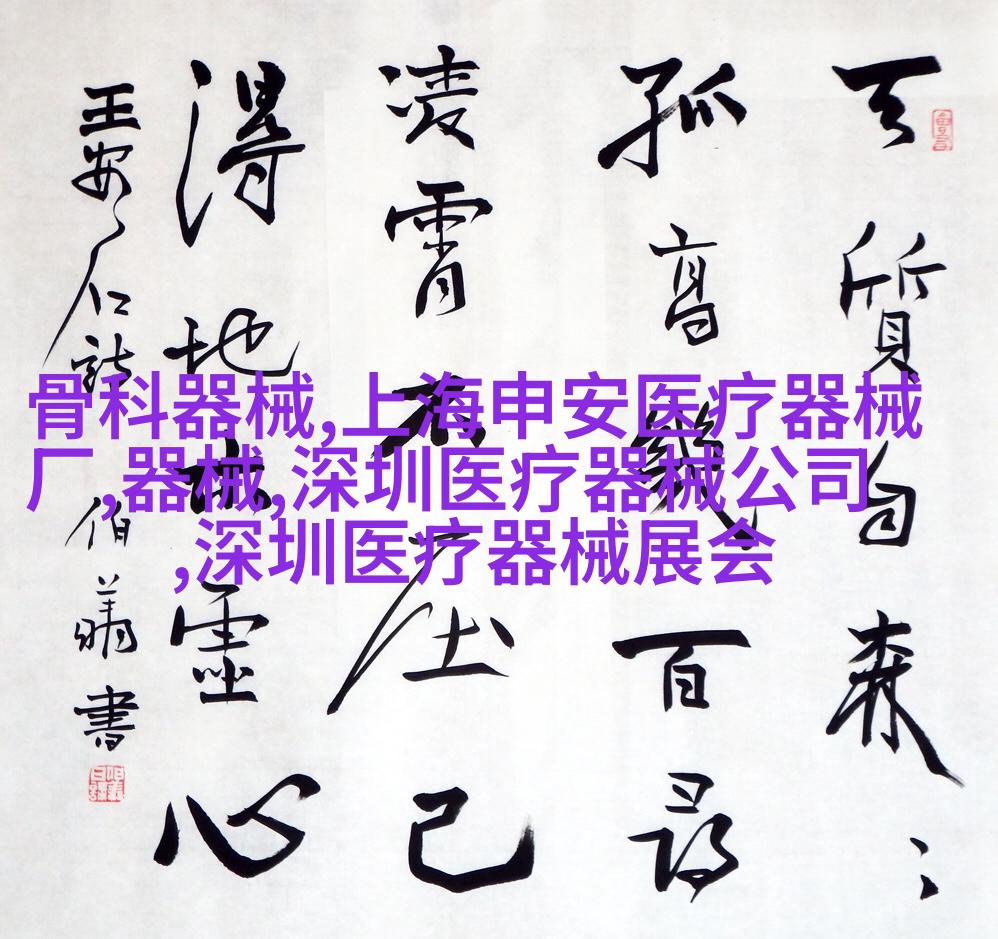 天質自森〻
孤高幾百尋
凌霄不屈己
得地本虛心
王安石詩 伯 書
骨科器械,上海申安医疗器械
厂,器械,深圳医疗器械公司
,深圳医疗器械展会